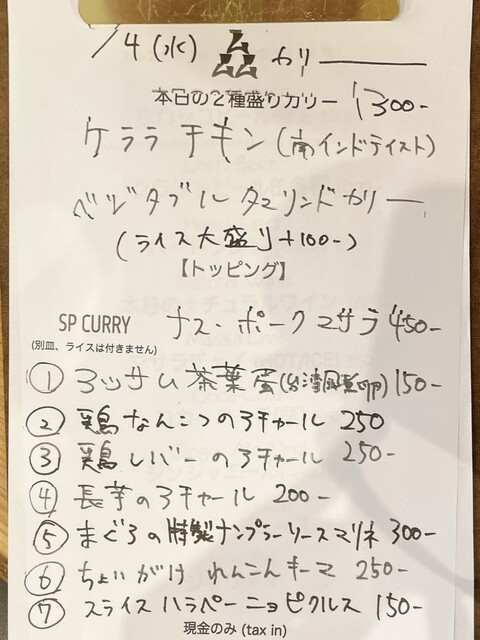 /4(水) ムムム カリー
本日の2種盛りカリー 1300-
ケララチキン(南インドテイスト)
ベジタブルタマリンドカリー
(ライス大盛り+100-)
【トッピング】
SP CURRY ナス・ポークマサラ 450-
(別皿、ライスは付きません)
① アッサム茶葉蛋(台湾風煮卵) 150-
② 鶏なんこつのアチャール 250
③ 鶏レバーのアチャール 250-
④ 長芋のアチャール 200-
⑤ まぐろの特製ナンプラーソースマリネ 300-
⑥ ちょいがけ れんこんキーマ 250-
⑦ スライスハラペーニョピクルス 150-
現金のみ (tax in)